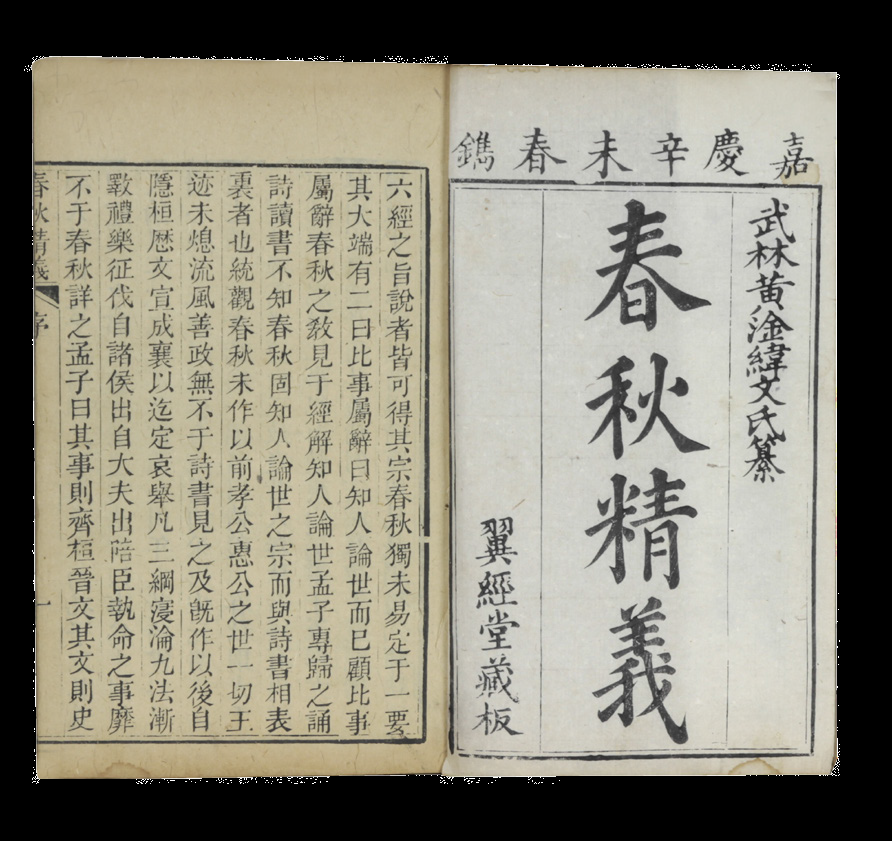 嘉慶辛未春鐫
武林黃淦緯文氏纂
春秋精義
翼經堂藏板
六經之旨說者皆可得其宗春秋獨未易定于一要
其大端有二曰比事屬辭曰知人論世而已顧比事
屬辭春秋之敎見于經解知人論世孟子專歸之誦
詩讀書不知春秋固知人論世之宗而與詩書相表
裏者也統觀春秋未作以前孝公惠公之世一切王
迹未熄流風善政無不于詩書見之及旣作以後自
隱桓歷文宣成襄以迄定哀舉凡三綱寖淪九法漸
斁禮樂征伐自諸侯出自大夫出陪臣執命之事靡
不于春秋詳之孟子曰其事則齊桓晉文其文則史
春秋精義 序 一